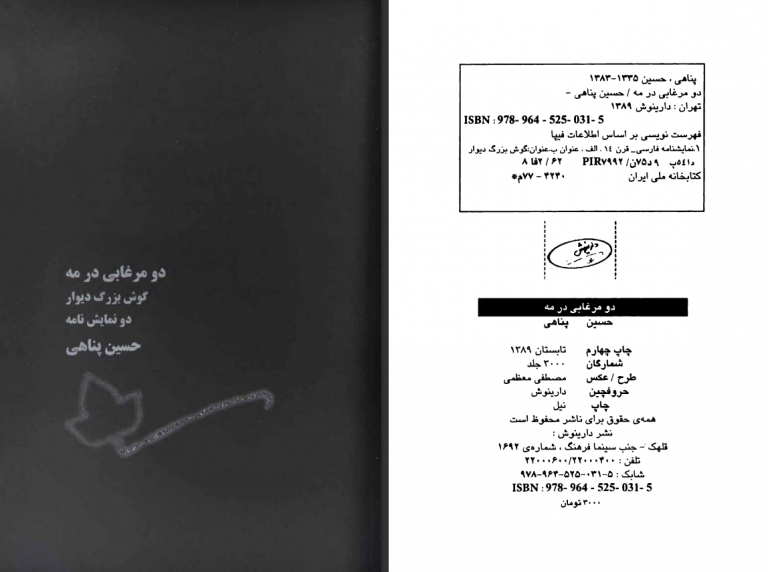 دو مرغابی در مه
گوش بزرگ دیوار
دو نمایش نامه
حسین پناهی
پناهی ، حسین ۱۳۳۵-۱۳۸۳
دو مرغابی در مه / حسین پناهی -
تهران : دارینوش ۱۳۸۹
ISBN : 978- 964 - 525- 031- 5
فهرست نویسی بر اساس اطلاعات فیپا
۱.نمایشنامه فارسی_ قرن ۱۴ . الف . عنوان ب.عنوان:گوش بزرگ دیوار
د۵۴۱پ ۹د۷۵ن/ PIR۷۹۹۲ ۶۲ / ۲فا ۸
کتابخانه ملی ایران ۴۲۴۰ - ۷۷م*
دارینوش
دو مرغابی در مه
حسین پناهی
چاپ چهارم تابستان ۱۳۸۹
شمارگان ۳۰۰۰ جلد
طرح / عکس مصطفی معظمی
حروفچین دارینوش
چاپ نیل
همه‌ی حقوق برای ناشر محفوظ است
نشر دارینوش :
قلهک - جنب سینما فرهنگ ، شماره‌ی ۱۶۹۲
تلفن : ۲۲۰۰۰۶۰۰/۲۲۰۰۰۴۰۰
شابک : ۵-۰۳۱-۵۲۵-۹۶۴-۹۷۸
ISBN : 978- 964 - 525- 031- 5
۳۰۰۰ تومان